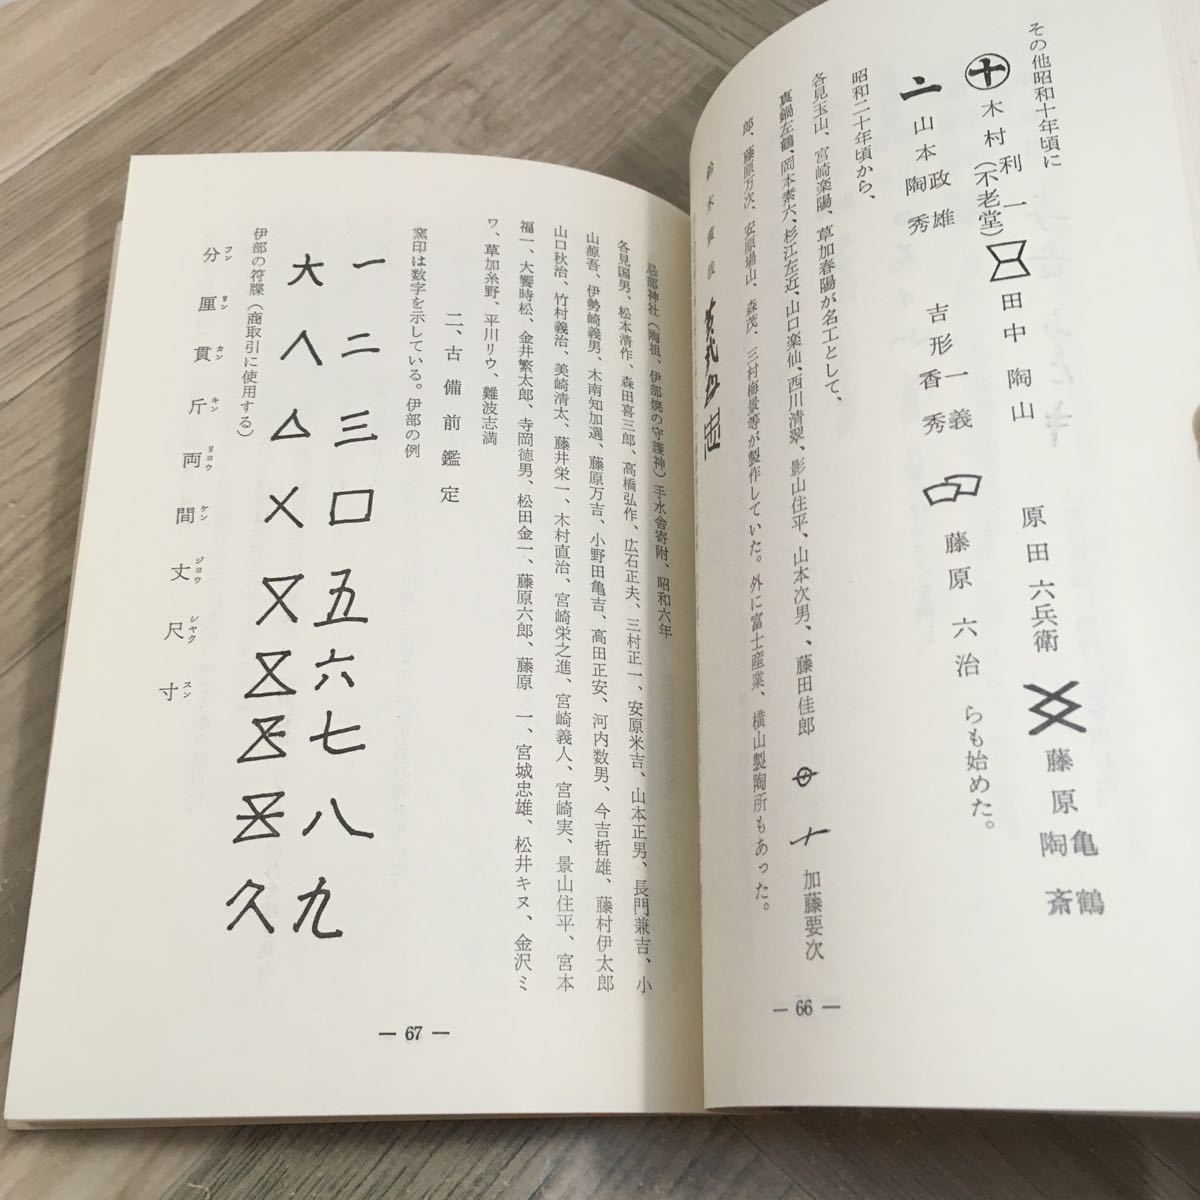 その他昭和十年頃に
木村利一(不老堂)
田中陶山
原田六兵衛
藤原亀鶴
陶斎
山本政雄
陶秀
吉形一義
香秀
藤原六治
らも始めた。
昭和二十年頃から、
各見玉山、宮崎楽陽、草加春陽が名工として、
加藤要次
真鍋左鶴、岡本素六、杉江左近、山口楽仙、西川清翠、影山住平、山本次男、、藤田佳郎
郎、藤原万次、安原場山、森茂、三村梅景等が製作していた。外に富士産業、横山製陶所もあった。
— 66 —
忌部神社(陶祖、伊部焼の守護神)手水舎寄附、昭和六年
各見国男、松本清作、森田喜三郎、高橋弘作、広石正夫、三村正一、安原米吉、山本正男、長門兼吉、小
山源吾、伊勢崎義男、木南知加選、藤原万吉、小野田亀吉、高田正安、河内数男、今吉哲雄、藤村伊太郎
山口秋治、竹村義治、美崎清太、藤井栄一、木村直治、宮崎栄之進、宮崎義人、宮崎実、景山住平、宮本
福一、大饗時松、金井繁太郎、寺岡徳男、松田金一、藤原六郎、藤原 一、宮城忠雄、松井キヌ、金沢ミ
ワ、草加糸野、平川リウ、難波志満
二、古備前鑑定
窯印は数字を示している。伊部の例
一二三口五六七八九
大
久
伊部の符牒(商取引に使用する)
分フン 厘リン 貫カン 斤キン 両リヨウ 間ケン 丈ジヨウ 尺シヤク 寸スン
— 67 —